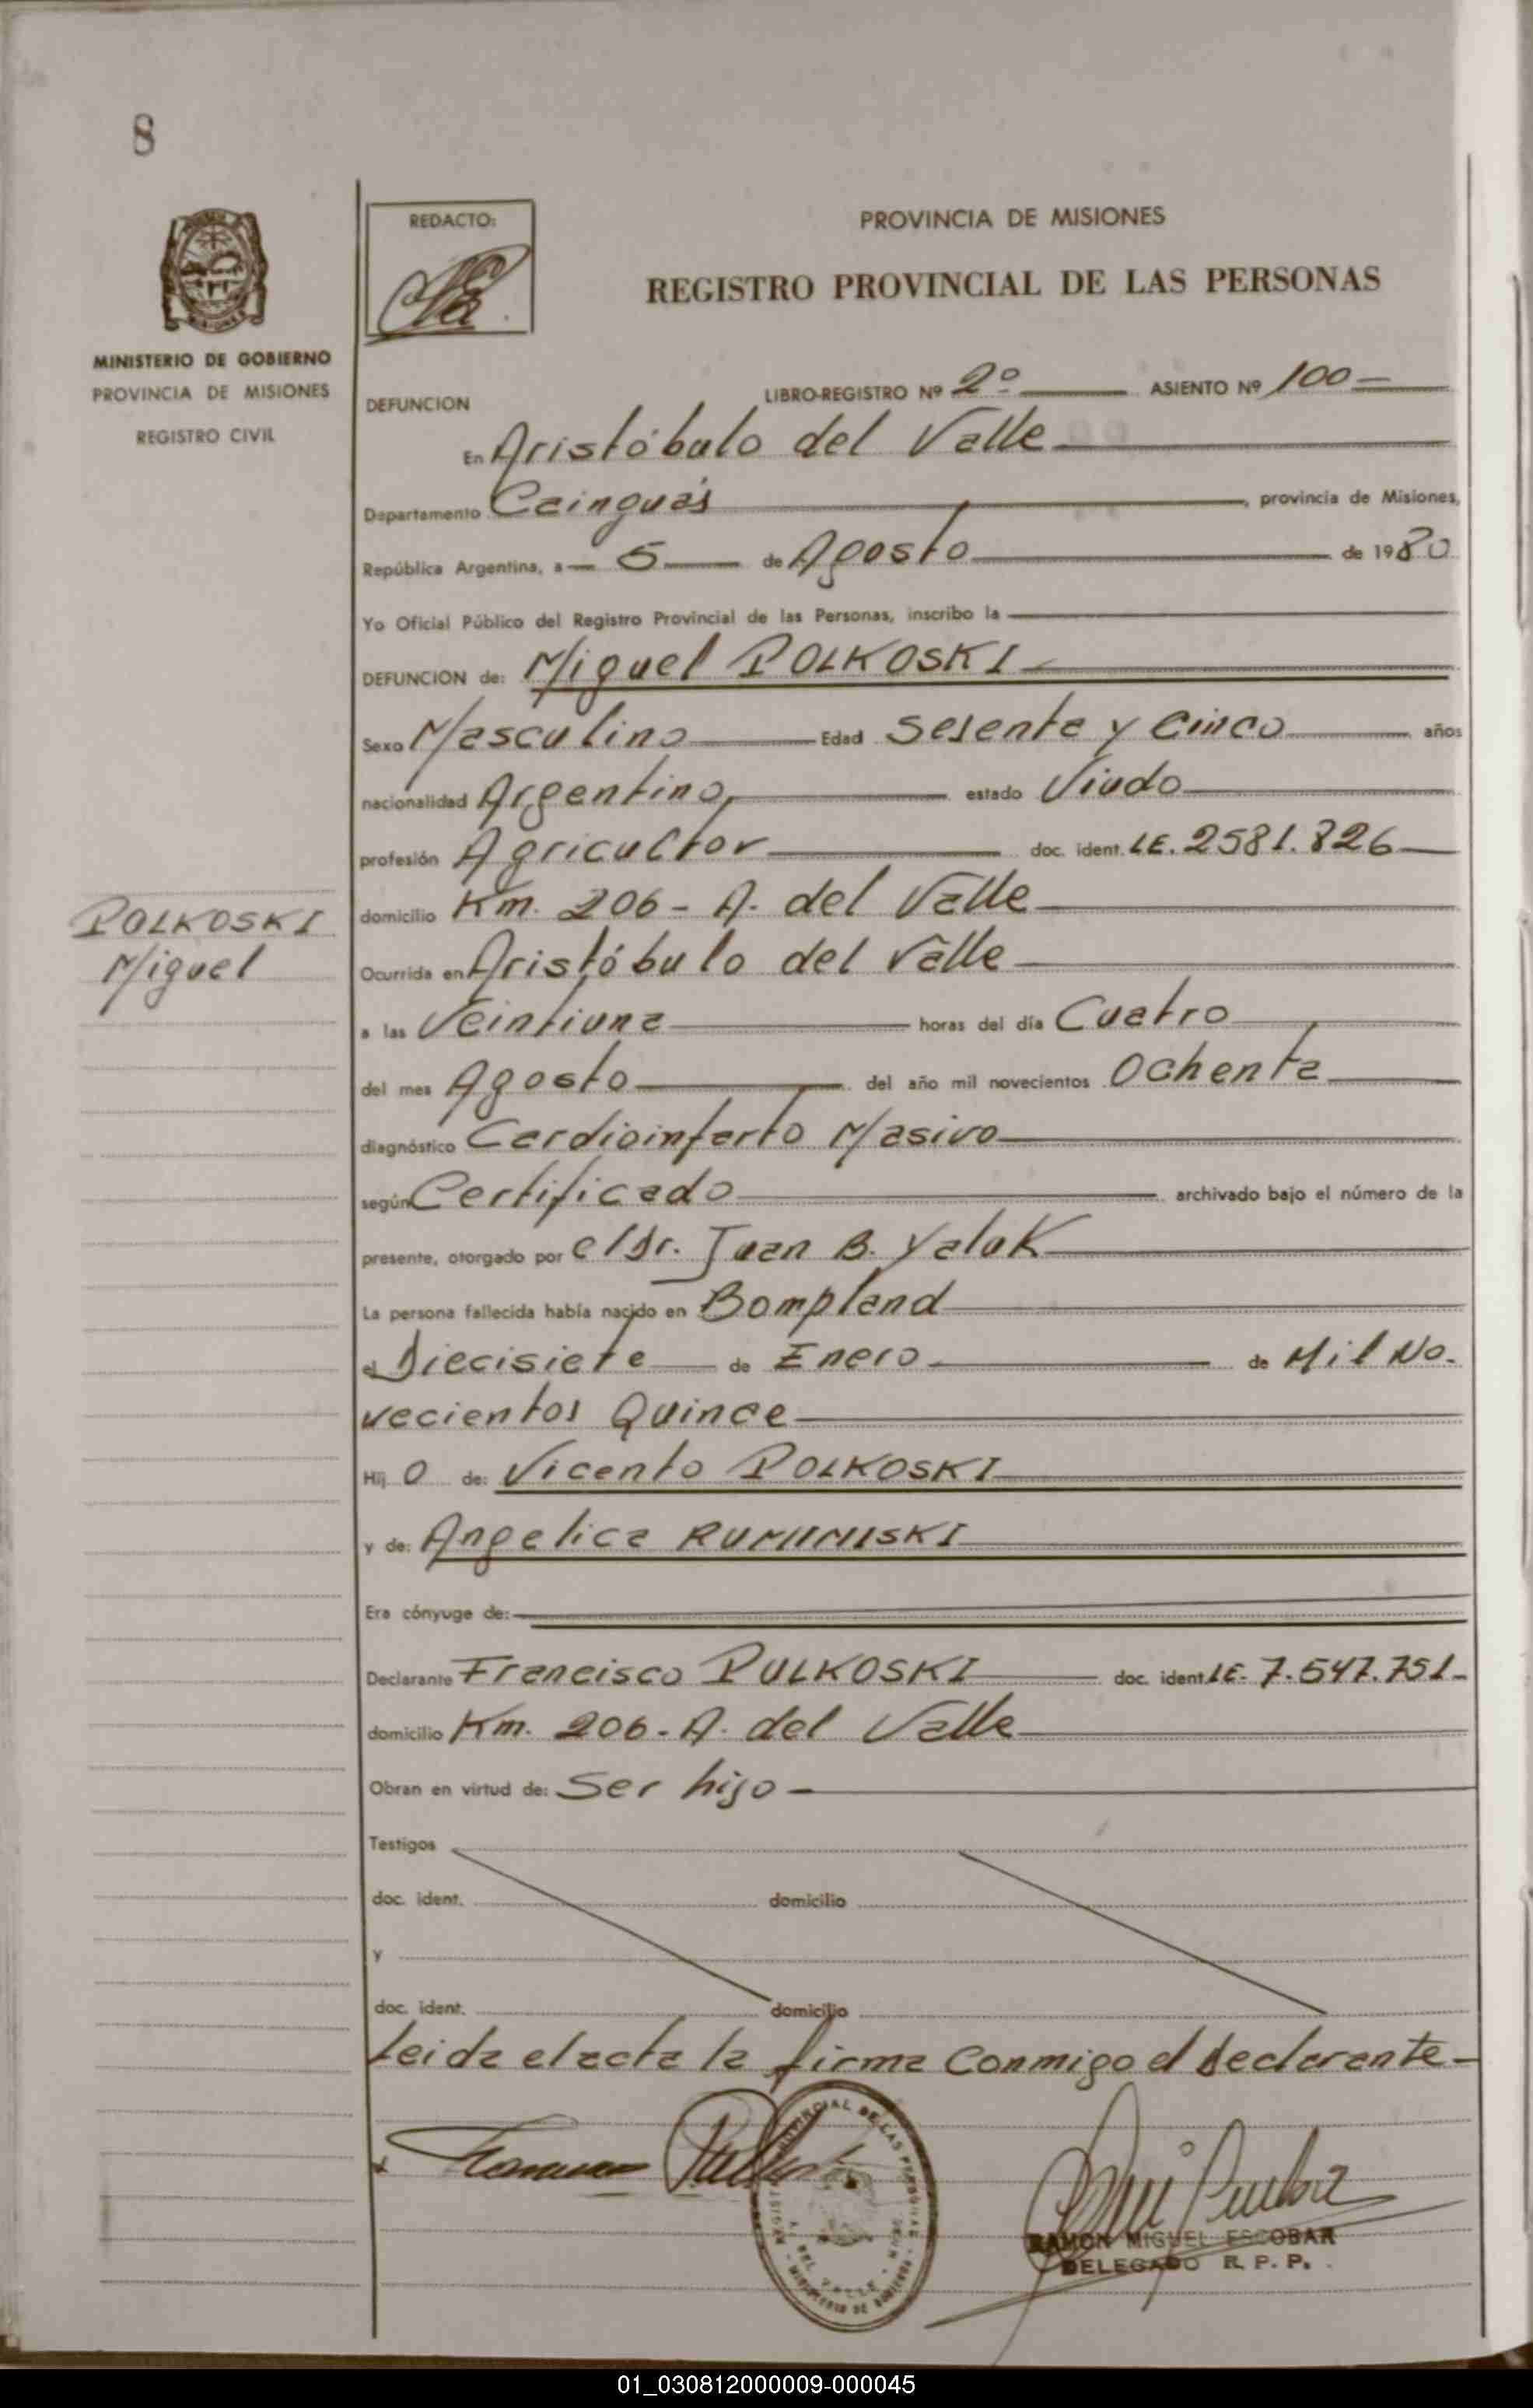 8
REDACTO:
PROVINCIA DE MISIONES
REGISTRO PROVINCIAL DE LAS PERSONAS
MINISTERIO DE GOBIERNO
PROVINCIA DE MISIONES
REGISTRO CIVIL
DEFUNCION LIBRO-REGISTRO Nº 2º ASIENTO Nº 100
En Aristóbulo del Valle
Departamento Cainguás, provincia de Misiones,
República Argentina, a 5 de Agosto de 1980
Yo Oficial Público del Registro Provincial de las Personas, inscribo la
DEFUNCION de: Miguel POLKOSKI
Sexo Masculino Edad Sesenta y Cinco años
nacionalidad Argentino, estado Viudo
profesión Agricultor doc. ident. LE. 2581.826
POLKOSKI
Miguel
domicilio Km. 206 - A. del Valle
Ocurrida en Aristóbulo del Valle
a las Veintiuna horas del día Cuatro
del mes Agosto del año mil novecientos Ochenta
diagnóstico Cardioinfarto Masivo
según Certificado archivado bajo el número de la
presente, otorgado por el Dr. Juan B. Yaluk
La persona fallecida había nacido en Bompland
el Diecisiete de Enero de Mil No-
vecientos Quince
Hij o de: Vicento POLKOSKI
y de: Angelica
Era cónyuge de:
Declarante Francisco PULKOSKI doc. ident LE. 7.547.751-
domicilio Km. 206 - A. del Valle
Obran en virtud de: Ser hijo -
Testigos
doc. ident. domicilio
y
doc. ident. domicilio
Leida el acta la firma Conmigo el declarante -
RAMON MIGUEL ESCOBAR
DELEGADO R. P. P.
01_030812000009-000045